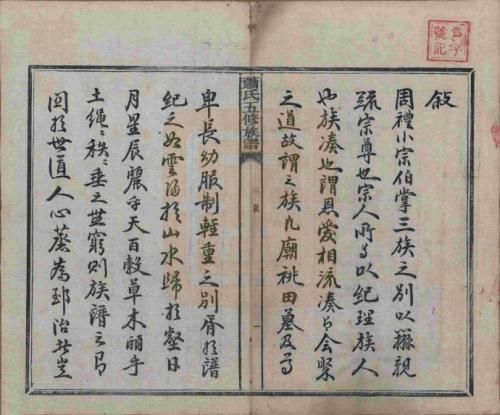 敘
周禮小宗伯掌三族之別以辨親
疏宗尊也宗人所以紀理族人
也族湊也謂恩愛相流湊也會聚
之道故謂之族凡廟祧田墓及
蕭氏五修族譜
敘
一
卑長幼服制輕重之別胥於譜
紀之如雲歸於山水歸於壑日
月星辰麗乎天百穀草木麗乎
土繩繩秩秩垂之無窮則族譜之
關於世道人心蔡為郅治者豈
為字
號記